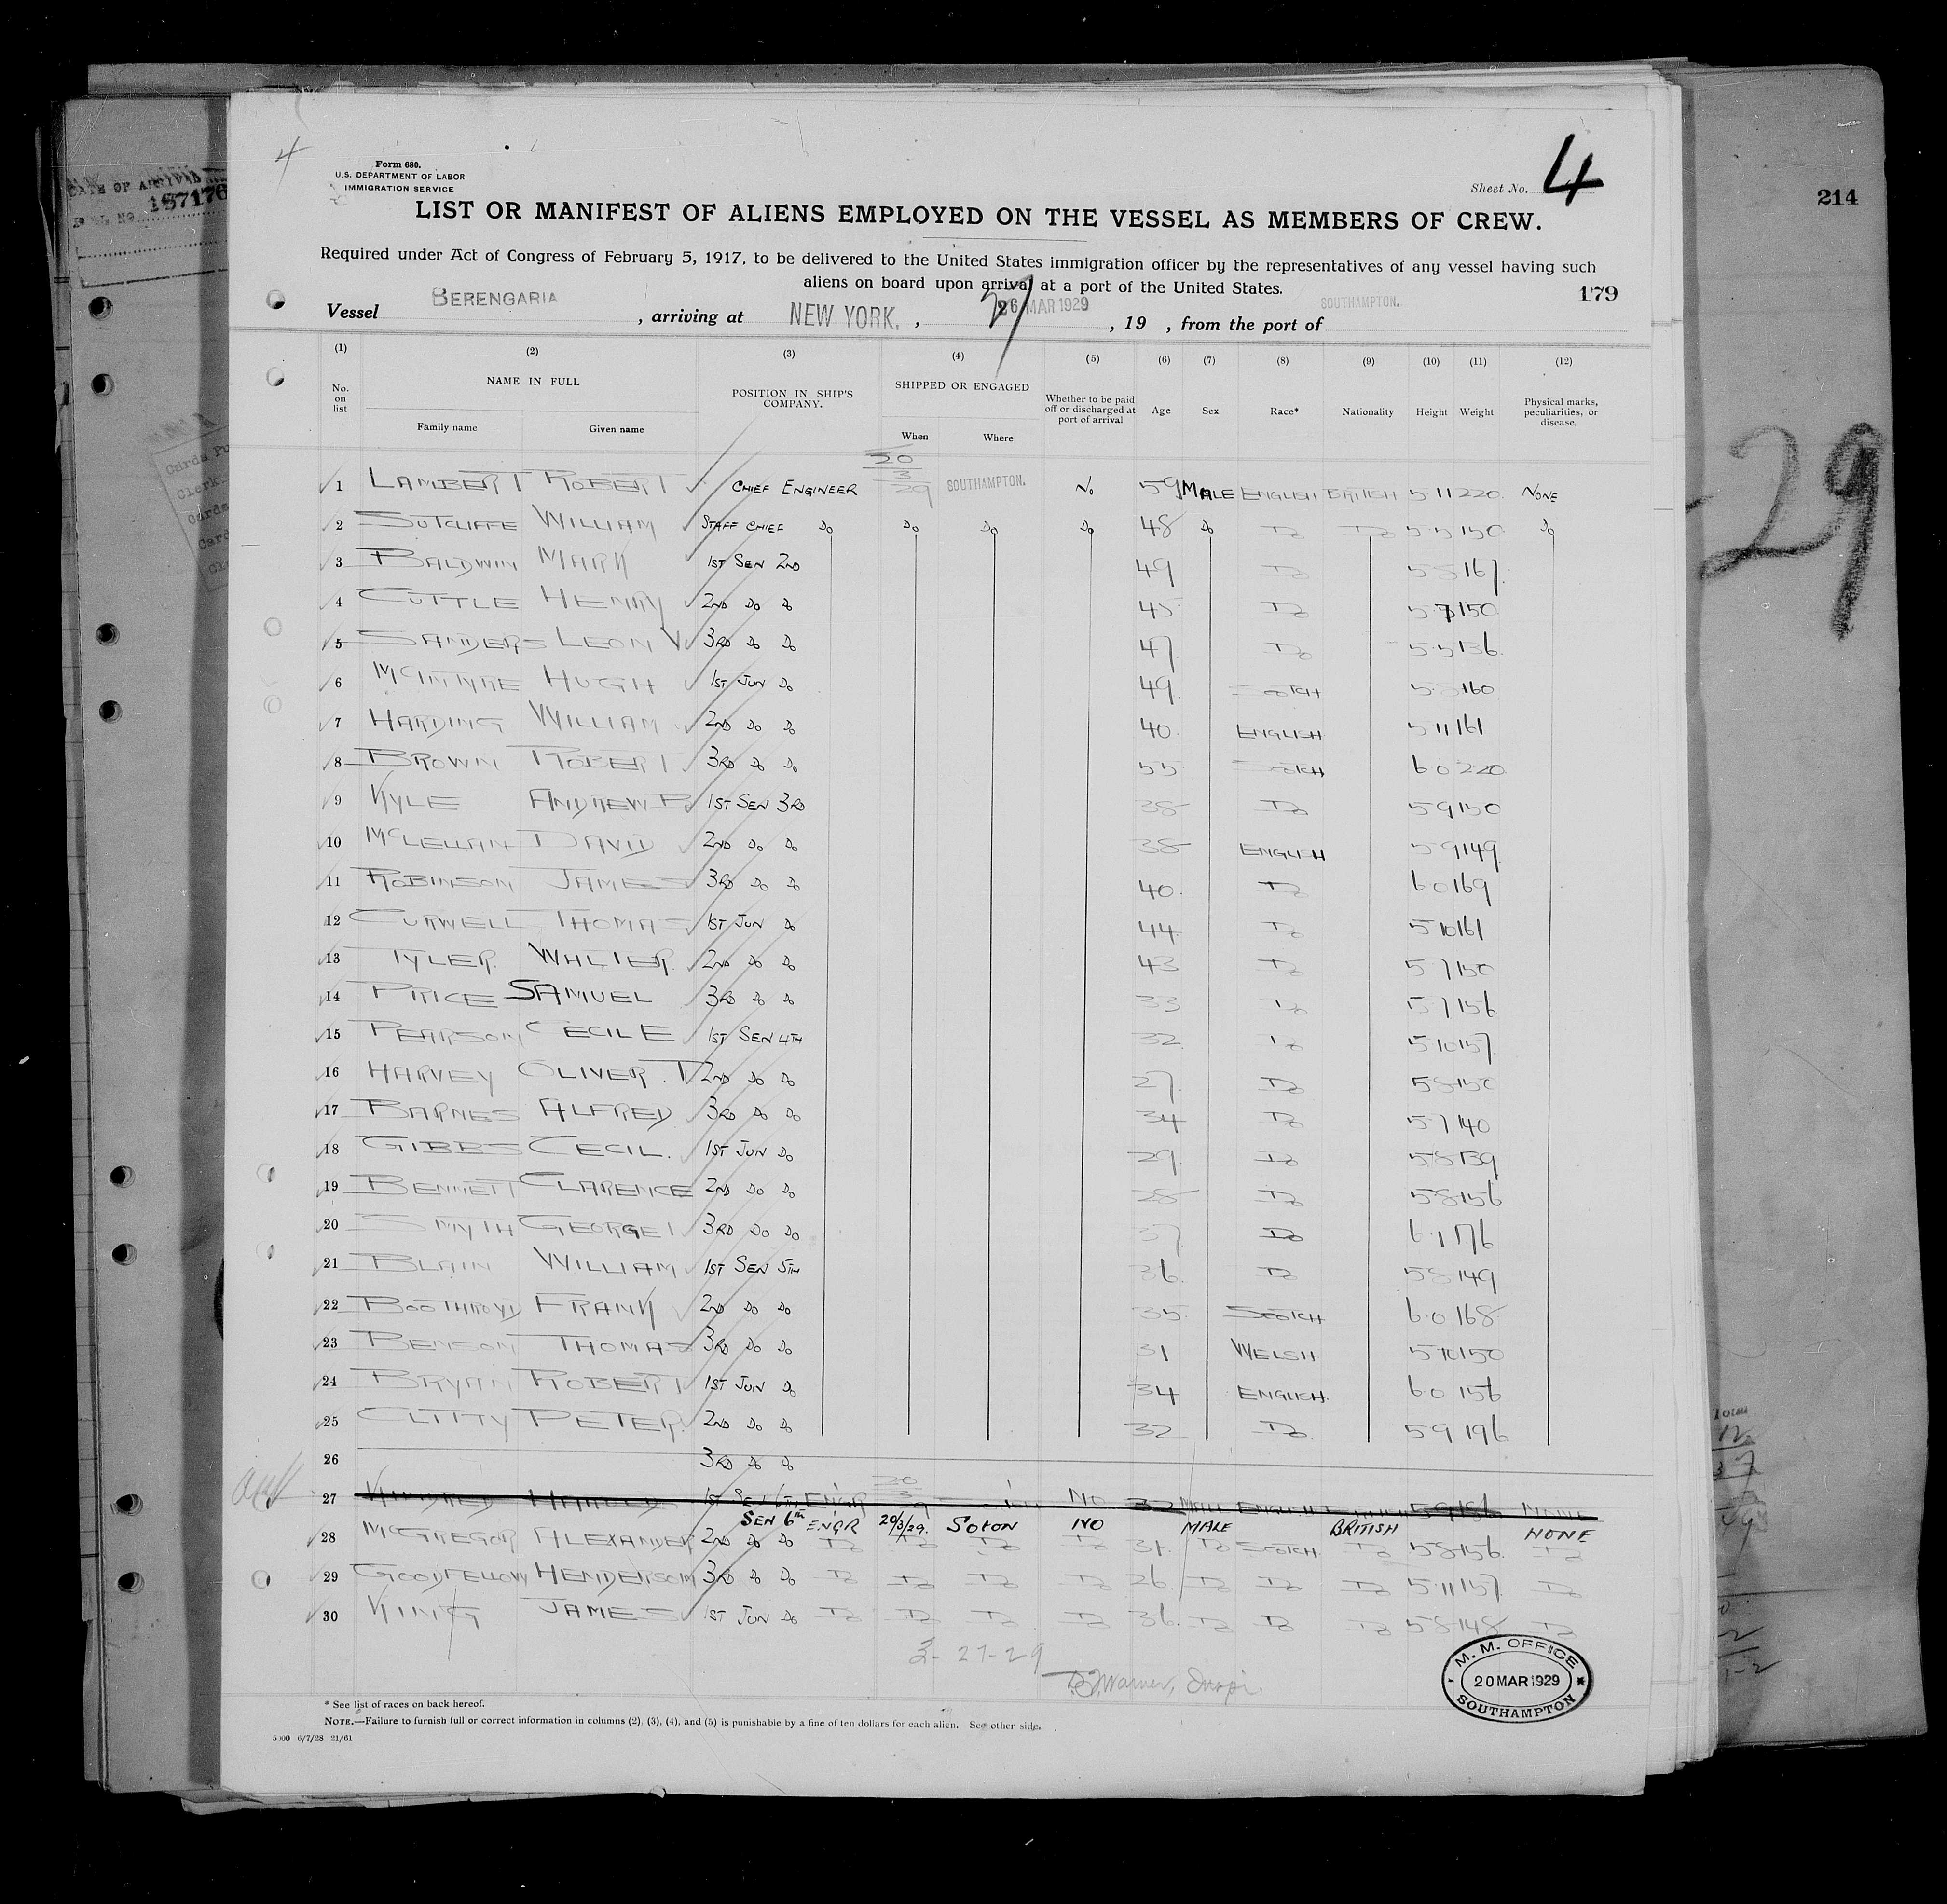 4
Form 680.
U.S. DEPARTMENT OF LABOR
IMMIGRATION SERVICE
Sheet No. 4
187176
214
LIST OR MANIFEST OF ALIENS EMPLOYED ON THE VESSEL AS MEMBERS OF CREW.
Required under Act of Congress of February 5, 1917, to be delivered to the United States immigration officer by the representatives of any vessel having such
aliens on board upon arrival at a port of the United States.
179
Vessel BERENGARIA , arriving at NEW YORK. , 26 MAR 1929 , 19 , from the port of SOUTHAMPTON.
(1) (2) (3) (4) (5) (6) (7) (8) (9) (10) (11) (12)
No. on list NAME IN FULL Family name Given name POSITION IN SHIP'S COMPANY. SHIPPED OR ENGAGED When Where Whether to be paid off or discharged at port of arrival Age Sex Race* Nationality Height Weight Physical marks, peculiarities, or disease.
1 LAMBERT ROBERT CHIEF ENGINEER 20/3/29 SOUTHAMPTON. No 59 MALE ENGLISH BRITISH 5 11 220 NONE
2 SUTCLIFFE WILLIAM STAFF CHIEF Do Do Do Do 48 Do Do Do 5 5 150 Do
3 BALDWIN MARK 1ST SEN 2ND 49 Do 5 8 167
4 CUTTLE HENRY 2ND Do Do 45 Do 5 7 150
5 SANDERS LEON V 3RD Do Do 47 Do 5 5 136
6 McINTYRE HUGH 1ST JUN Do 49 SCOTCH 5 8 160
7 HARDING WILLIAM 2ND Do Do 40 ENGLISH 5 11 161
8 BROWN ROBERT 3RD Do Do 55 SCOTCH 6 0 220
9 KYLE ANDREW 1ST SEN 3RD 38 Do 5 9 150
10 McLELLAN DAVID 2ND Do Do 38 ENGLISH 5 9 149
11 ROBINSON JAMES 3RD Do Do 40 Do 6 0 169
12 CURWELL THOMAS 1ST JUN Do 44 Do 5 10 161
13 TYLER WALTER 2ND Do Do 43 Do 5 7 150
14 PRICE SAMUEL 3RD Do Do 33 Do 5 7 156
15 PEARSON CECIL E 1ST SEN 4TH 32 Do 5 10 157
16 HARVEY OLIVER. T 2ND Do Do 27 Do 5 8 150
17 BARNES ALFRED 3RD Do Do 34 Do 5 7 140
18 GIBBS CECIL. 1ST JUN Do 29 Do 5 8 139
19 BENNETT CLARENCE 2ND Do Do 28 Do 5 8 156
20 SMYTH GEORGE 3RD Do Do 37 Do 6 1 176
21 BLAIN WILLIAM 1ST SEN 5TH 36 Do 5 8 149
22 BOOTHROYD FRANK 2ND Do Do 35 SCOTCH 6 0 168
23 BENSON THOMAS 3RD Do Do 31 WELSH 5 10 150
24 BRYAN ROBERT 1ST JUN Do 34 ENGLISH. 6 0 156
25 CLITTY PETER 2ND Do Do 32 Do 5 9 196
26 3RD Do Do
27 KINDRED HAROLD 1ST SEN 6TH ENGR 20/3/29 NO 32 MALE ENGLISH BRITISH 5 9 156 NONE
SEN 6th ENGR 20/3/29. SOTON NO MALE BRITISH NONE
28 McGREGOR ALEXANDER 2ND Do Do Do Do Do Do 31 Do SCOTCH Do 5 8 156 Do
29 GOODFELLOW HENDERSON 3RD Do Do Do Do Do Do 26 Do Do Do 5 11 157 Do
30 KING JAMES 1ST JUN Do Do Do Do Do 36 Do Do Do 5 8 148 Do
3-27-29
Warner, Inspr.
M. M. OFFICE
20 MAR 1929
SOUTHAMPTON
* See list of races on back hereof.
NOTE.—Failure to furnish full or correct information in columns (2), (3), (4), and (5) is punishable by a fine of ten dollars for each alien. See other side.
5000 6/7/28 21/61
29
Total